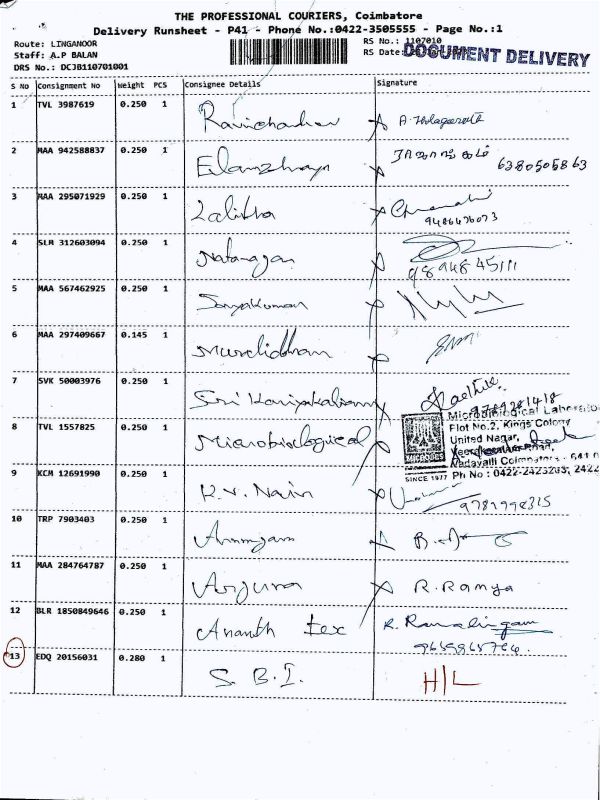 THE PROFESSIONAL COURIERS, Coimbatore
Delivery Runsheet - P41 - Phone No.:0422-3505555 - Page No.:1
Route: LINGANOOR
RS No.: 1107010
Staff: A.P BALAN
RS Date:
DOCUMENT DELIVERY
DRS No.: DCJB110701001
S No Consignment No Weight PCS Consignee Details Signature
1 TVL 3987619 0.250 1 Ravichandran
2 MAA 942588837 0.250 1 6380505863
3 MAA 295071929 0.250 1 Lalitha
4 SLM 312603094 0.250 1 Natarajan 9894845111
5 MAA 567462925 0.250 1
6 MAA 297409667 0.145 1 Muralidharan
7 SVK 50003976 0.250 1 Sri Kariyakaliamman 9789281418
8 TVL 1557825 0.250 1 Microbiological
Microbiological Laborato
Flot No.2, Kings Colony
United Nagar,
SINCE 1977
Ph No : 0422-2423203, 2422
9 KCM 12691990 0.250 1 K.V. Nair
10 TRP 7903403 0.250 1
11 MAA 284764787 0.250 1 Arjuna R. Ramya
12 BLR 1850849646 0.250 1 Ananth tex R. Ramalingam
13 EDQ 20156031 0.280 1 S. B. I. H/L